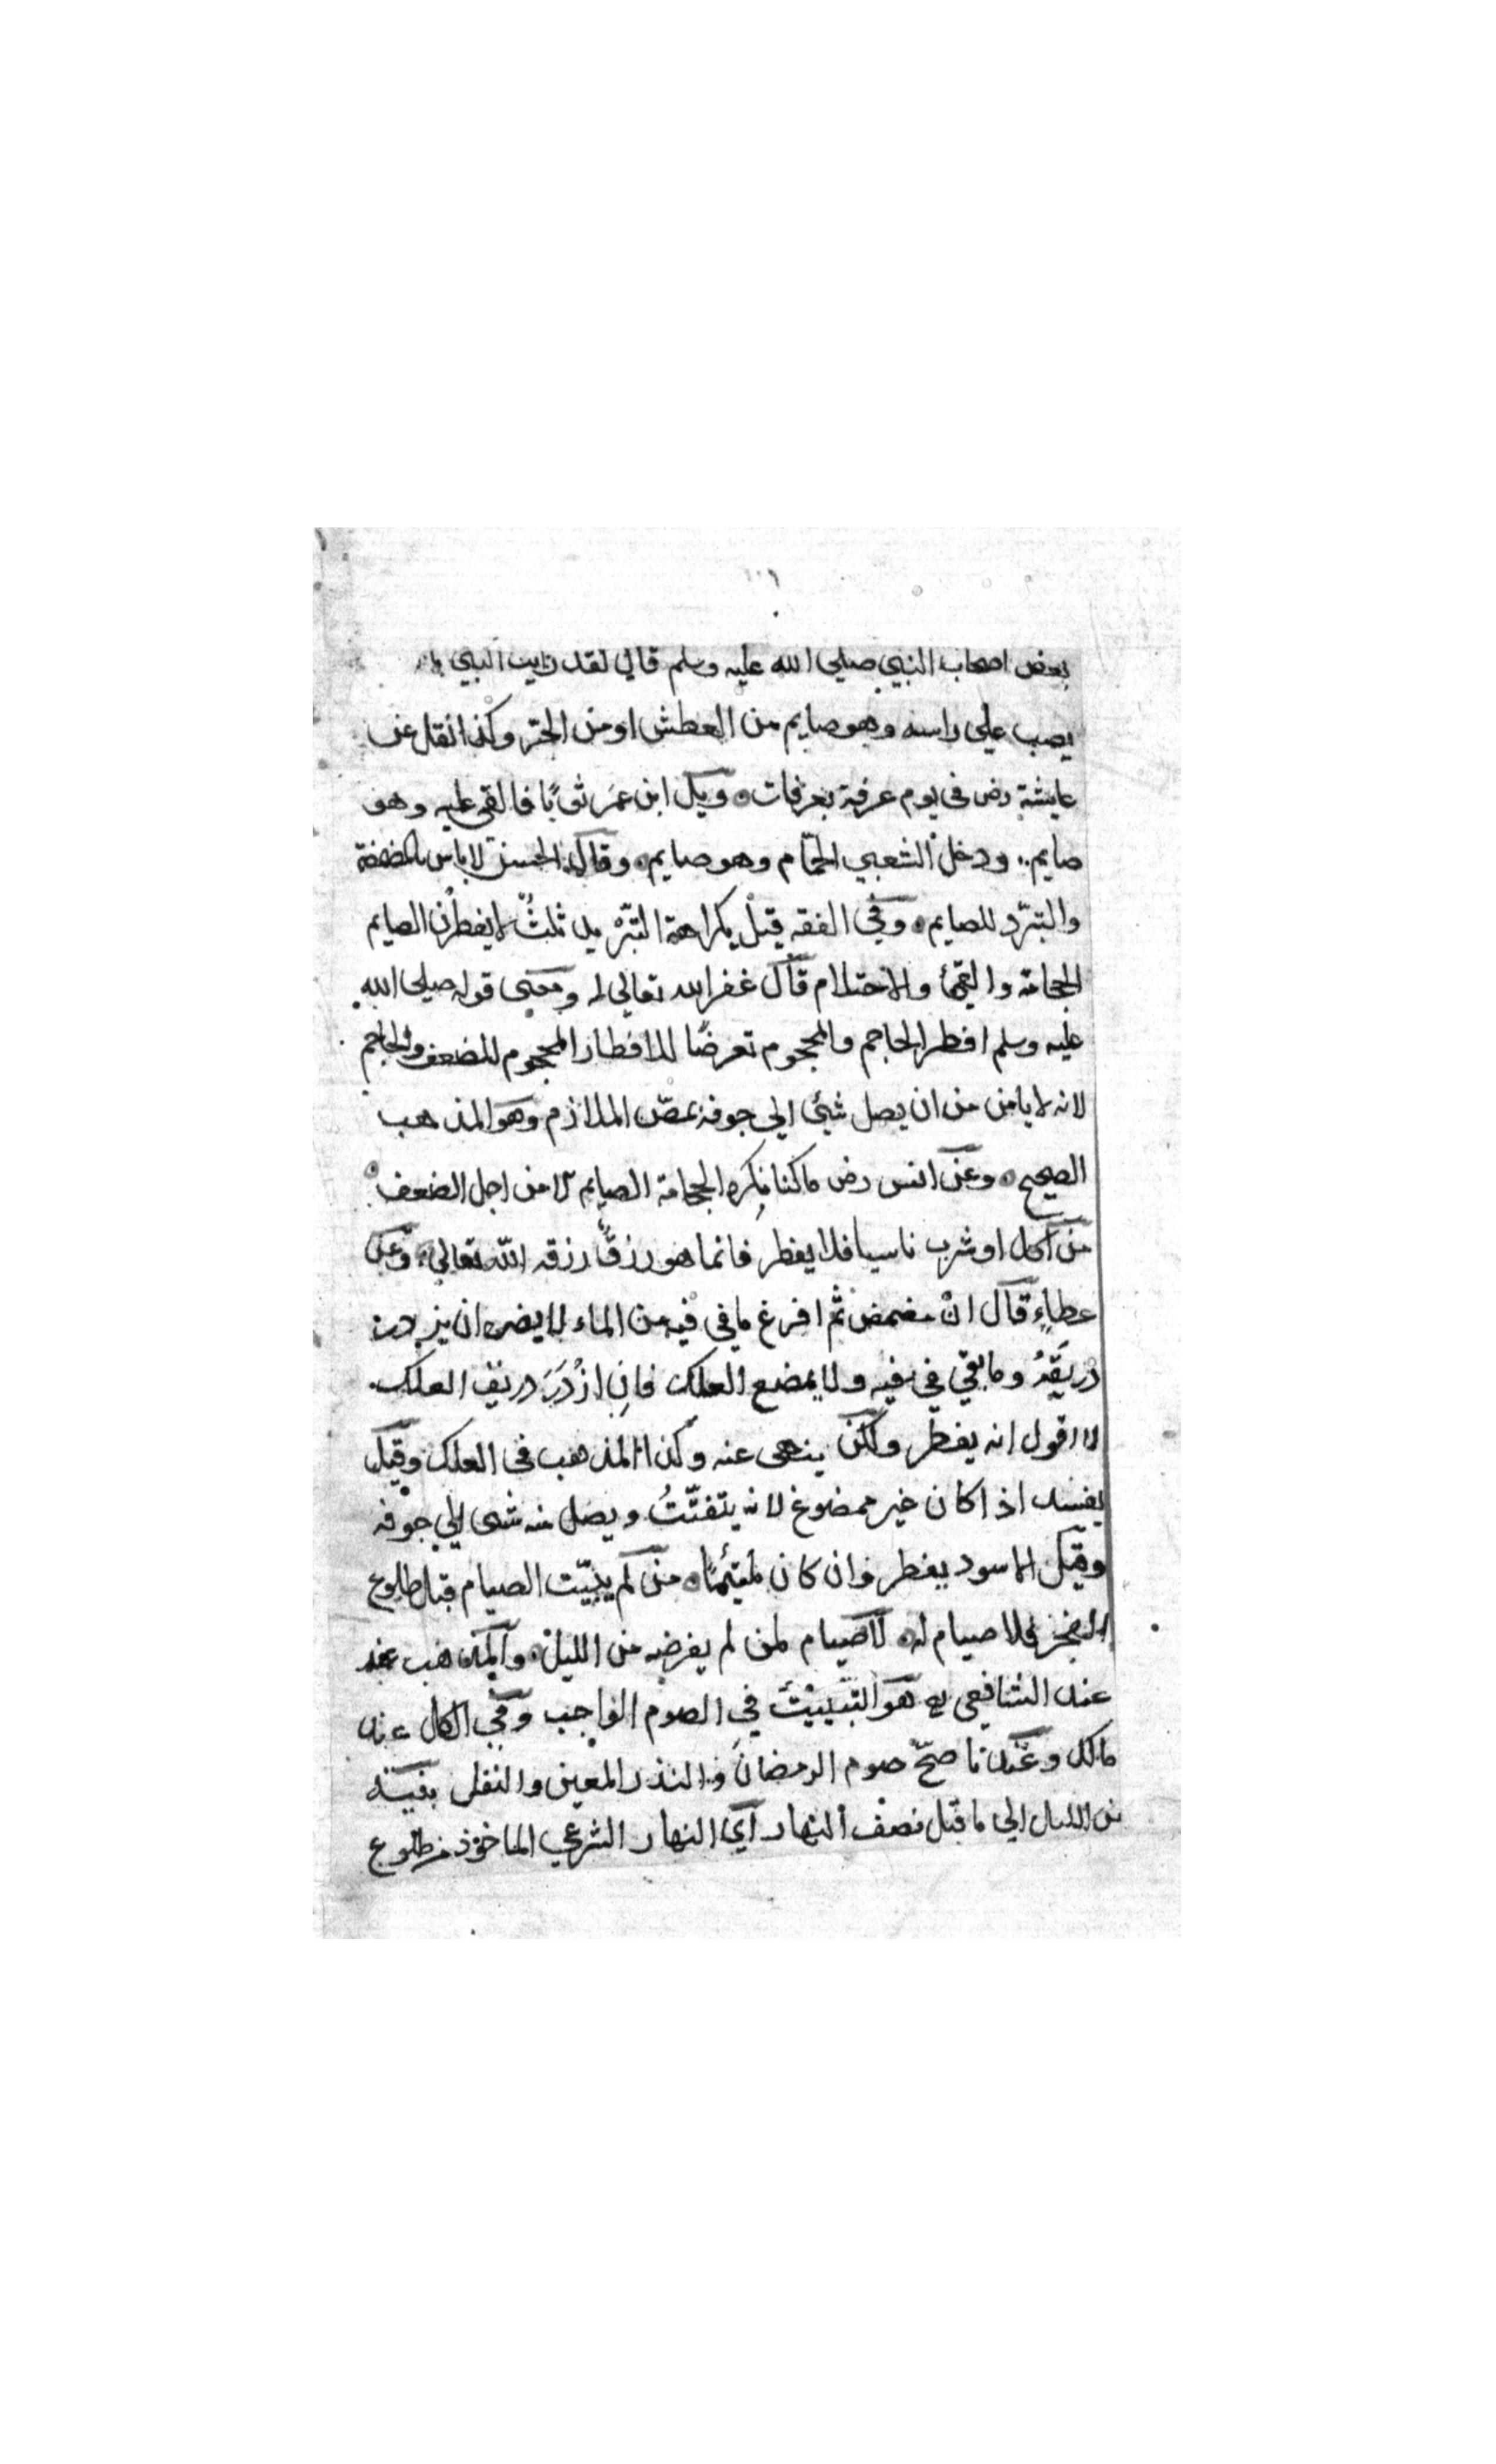 بعض اصحاب النبي صلى الله عليه وسلم قال لقد رايت النبي
يصب على راسه وهو صايم من العطش او من الحرّ وكذا نقل عن
عايشة رض فى يوم عرفة بعرفات ه وبل ابن عمَر ثوبًا فالقى عليه وهو
صايم ه ودخل الشعبي الحمّام وهو صايم ه وقال الحسن لا باس بالمضمضة
والتبرّد للصايم ه وفي الفقه قيل بكراهة التبرّيد ثلثٌ لا يفطرن الصايم
الحجامة والقئ والاحتلام قال غفر الله تعالى له ومعنى قوله صلى الله
عليه وسلم افطر الحاجم والمحجوم تعرضًا للافطار المحجوم للضعف والحاجم
لانه لا يامن من ان يصل شئ الي جوفه بمصّ الملازم وهو المذهب
الصحيح ه وعن انس رض ما كنا نكره الحجامة الصايم الا من اجل الضعف ه
من اكل او شرب ناسيا فلا يفطر فانما هو رزقٌ رزقه الله تعالى ه وعن
عطاءٍ قال انْ مضمض ثم افرغ ما في فيه من الماء لا يضره ان يزدرد
ريقَهُ وما بقي في فيه ولا يمضغ العلك فانِ ازْدَرَد ريق العلك
لا اقول انه يفطر ولكن ينهى عنه وكذا المذهب فى العلك وقيل
يفسد اذا كان غير ممضوغ لانه يتفتّتُ ويصل منه شى الي جوفه
وقيل الاسود يفطر وان كان ملتئمًا ه من لم يبيّت الصيام قبل طلوع
الفجر فلا صيام له ه لا صيام لمن لم يفرضه من الليل ه والمذهب عند
عند الشافعي هو التبييت في الصوم الواجب وفي الكل عند
مالك وعندنا صحّ صوم الرمضان والنذر المعين والنفل بنيته
من الليل الى ما قبل نصف النهار اي النهار الشرعي الماخوذ من طلوع